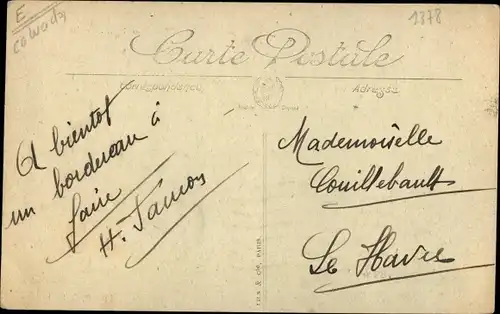 E
1378
Carte Postale
Correspondance
Adresse
A bientot
un bordereau à
faire
H.
Mademoiselle
Couillebault
Le Havre
& Cie, PARIS.